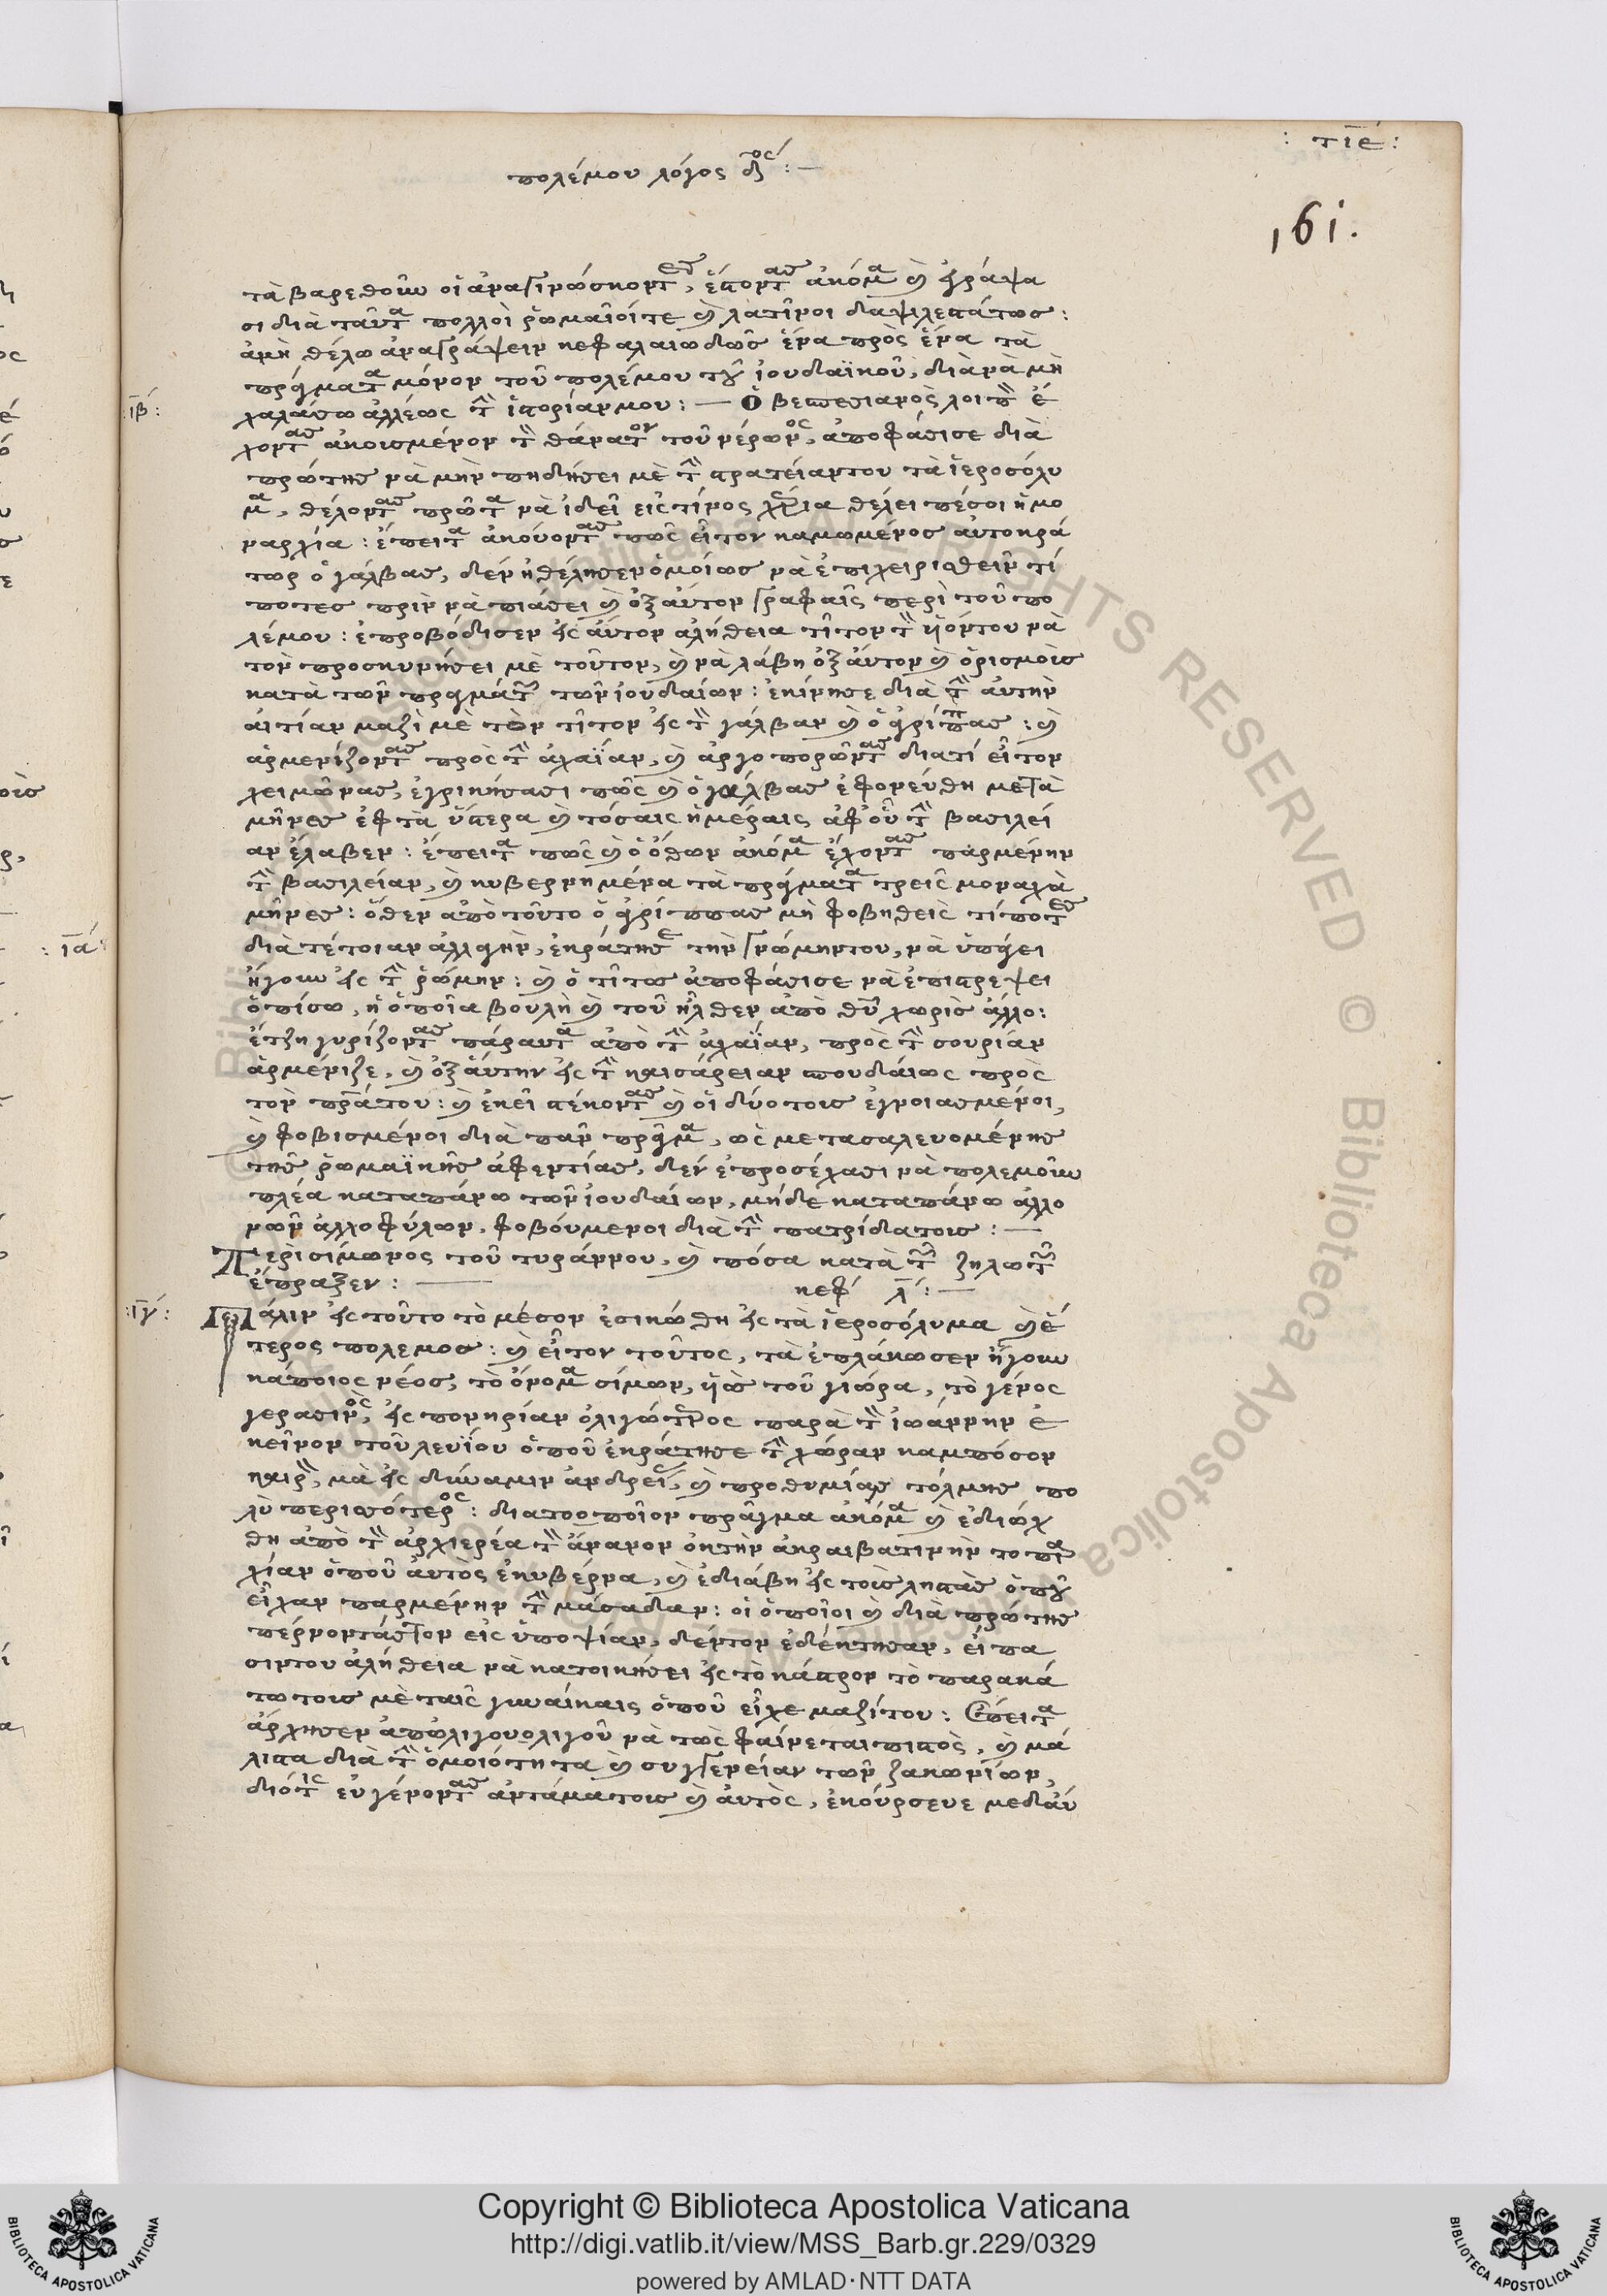 : τιέ :
πολέμου λόγος δος : —
161.
τὰ βαρεθοῦν οἱ ἀναγινώσκοντες, ἔστοντας ἀκόμα καὶ ἔγραψα
σι διὰ ταῦτα πολλοὶ ῥωμαῖοίτε καὶ λατῖνοι δαψιλεστάτως :
ἀμὴ θέλω ἀναγράψειν κεφαλαιωδῶς ἕνα πρὸς ἕνα τὰ
πράγματα μόνον τοῦ πολέμου τοῦ ἰουδαϊκοῦ, διὰ νὰ μὴ
:ιβ: χαλάσω ἀλλέως τὴν ἱστορίανμου : — Ὁ βεσπεσιανὸς λοιπὸν ἔ
χοντας ἀκουσμένον τὸν θάνατον τοῦ νέρωνος, ἀποφάσισε διὰ
πρώτης νὰ μὴν πηδήσει μὲ τὸ στρατείαντου τὰ ἱεροσόλυ
μα, θέλοντας πρῶτα νὰ ἰδεῖ εἰς τίνος χέρια θέλει πέσοι ἡ μο
ναρχία : ἔπειτα ἀκούοντας πῶς εἶτον καμωμένος αὐτοκρά
τωρ ὁ γάλβας, δὲν ἠθέλησεν ὁμοίως νὰ ἐπιχειρισθεῖν τί
ποτες πρὶν νὰ πιάσει καὶ ὀξαύτον γραφαῖς περὶ τοῦ πο
λέμου : ἐπροβόδισεν εἰς αὐτον ἀλήθεια τῖτον τὸν ὑόντου νὰ
τὸν προσκυνήσει μὲ τοῦτον, καὶ νὰ λάβη ὀξαύτον καὶ ὁρισμοὺς
κατὰ τῶν πραγμάτων τῶν ἰουδαίων : ἐκίνησε διὰ τὴν αὐτὴν
αἰτίαν μαζὶ μὲ τὸν τῖτον εἰς τὸν γάλβαν καὶ ὁ ἀγρίππας : καὶ
ἀρμενίζοντας πρὸς τὴν ἀχαΐαν, καὶ ἀργοπορῶντας διατὶ εἶτον
χειμῶνας, ἐγρικήσασι πῶς καὶ ὁ γάλβας ἐφονεύθη μετὰ
μῆνες ἐφτὰ ὕστερα καὶ τόσαις ἡμέραις, ἀφ' οὗ τὴν βασιλεί
αν ἔλαβεν : ἔπειτα πῶς καὶ ὁ ὄθων ἀκόμα ἔχοντας παρμένην
τὴν βασιλείαν, καὶ κυβερνημένα τὰ πράγματα τρεῖς μοναχὰ
μῆνες : ὅθεν ἀπὸ τοῦτο ὁ ἀγρίππας μὴ φοβηθεὶς τίποτες
:ιά: διὰ τέτοιαν ἀλλαγὴν, ἐκράτησε τὴν γνώμηντου, νὰ ὑπάγει
ἤγουν εἰς τὴν ῥώμην : καὶ ὁ τῖτος ἀποφάσισε νὰ ἐπιστρέψει
ὀπίσω, ἡ ὁποῖα βουλὴ καὶ τοῦ ἦλθεν ἀπὸ θεοῦ χωρὶς ἄλλο :
ἔτζη γυρίζοντας πάραυτα ἀπὸ τὴν ἀχαΐαν, πρὸς τὴν σουρίαν
ἀρμένιζε, καὶ ὀξαύτην εἰς τὴν καισάρειαν σπουδαίως πρὸς
τὸν πατέρα του : καὶ ἐκεῖ στέκοντας καὶ οἱ δύο τους ἐγνοιασμένοι,
καὶ φοβισμένοι διὰ πᾶν πράγμα, ὡς μετασαλευομένης
τῆς ῥωμαϊκῆς ἀφεντίας, δὲν ἐπροσέχασι νὰ πολεμοῦν
πλέα καταπάνω τῶν ἰουδαίων, μήδε καταπάνω ἀλλο
νῶν ἀλλοφύλων, φοβούμενοι διὰ τὴν πατρίδατους : —
Περὶ σίμωνος τοῦ τυράννου, καὶ πόσα κατὰ τῶν ζηλωτῶν
ἔπραξεν : — κεφ λ : —
:ιγ: Πάλιν εἰς τοῦτο τὸ μέσον ἐσικώθη εἰς τὰ ἱεροσόλυμα καὶ ἕ
τερος πόλεμος : καὶ εἶτον τοῦτος, τὰ ἐπλάκωσεν ἤγουν
κάποιος νέος, τὸ ὄνομα σίμων, ὑὸς τοῦ γιώρα, τὸ γένος
γερασινὸς, εἰς πονηρίαν ὀλιγώτερος παρὰ τὸν ἰωάννην ἐ
κεῖνον τοῦ λευΐου ὁποῦ ἐκράτησε τὴν χώραν καμπόσον
καιρὸν, μὰ εἰς δύναμιν ἀνδρείας, καὶ προθυμίας τόλμης πο
λὺ περισσότερος : διατοοποῖον πρᾶγμα ἀκόμα καὶ ἐδιώχ
θη ἀπὸ τὸν ἀρχιερέα τὸν ἄνανον ὀκτὴν ἀκραιβατινὴν τοπαρ
χίαν ὁποῦ αὐτὸς ἐκυβέρνα, καὶ ἐδιάβη εἰς τοὺς ληστὰς ὁποῦ
εἶχαν παρμένην τὴν μάσαδαν : οἱ ὁποῖοι καὶ διὰ πρώτης
πέρνοντάςτον εἰς ὑποψίαν, δέντον ἐδέκτησαν, εἰ πα
σιντου ἀλήθεια νὰ κατοικήσει εἰς τὸ κάστρον τὸ παρακά
τω τους μὲ ταῖς γυναίκαις ὁποῦ εἶχε μαζίτου : Ἔπειτα
ἄρχησεν ἀπολίγουολιγοῦ νὰ τὼς φαίνεται πιστὸς, καὶ μά
λιστα διὰ τὴν ὁμοιότητα καὶ συγγενείαν τῶν ζακωνίων,
διότις εὐγένοντας ἀντάματους καὶ αὐτὸς, ἐκούρσευε μεδαύ